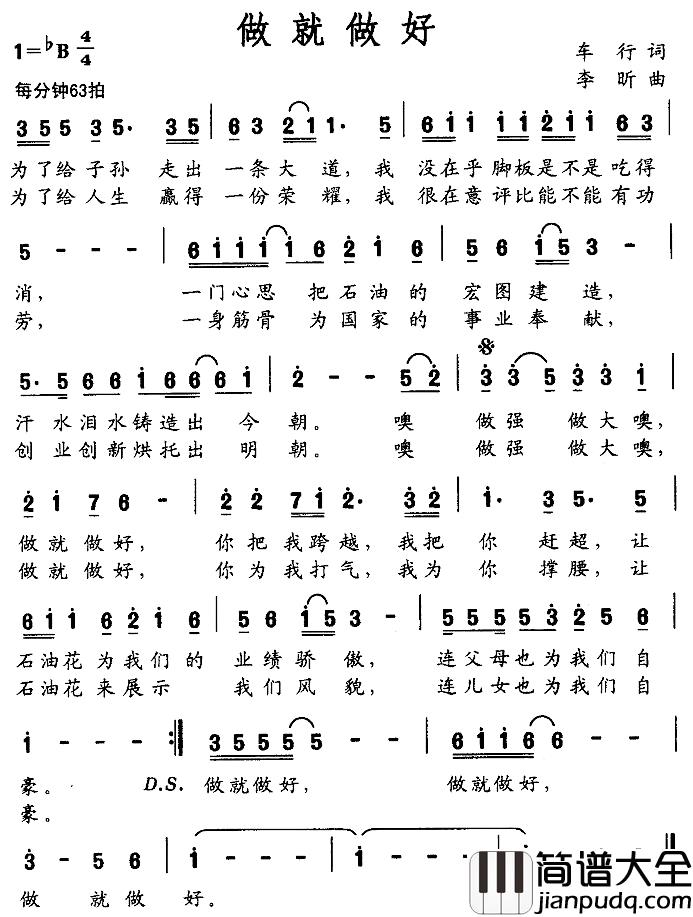 做就做好
1=♭B 4/4
车行词
李昕曲
每分钟63拍
3 5 5 3 5· 3 5 | 6 3 2 1 1 1· 5 | 6 1 1 1 1 2 1 1 6 3 |
为了给子孙 走出 一条大道，我 没在乎脚板是不是吃得
为了给人生 赢得 一份荣耀，我 很在意评比能不能有功
5 - - - | 6 1 1 1 1 6 2 1 6 | 5 6 1 5 3 - |
消， 一门心思 把石油的 宏图建造，
劳， 一身筋骨 为国家的 事业奉献，
5· 5 6 6 1 6 6 6 1 | 2 - - 5 2 | 3 3 5 3 3 1 |
汗水泪水铸造出 今 朝。 噢 做强 做大噢，
创业创新烘托出 明 朝。 噢 做强 做大噢，
2 1 7 6 - | 2 2 7 1 2· 3 2 | 1· 3 5· 5 |
做就做好， 你把我跨越，我把 你 赶超，让
做就做好， 你为我打气，我为 你 撑腰，让
6 1 1 1 6 2 1 6 | 5 6 1 5 3 - | 5 5 5 5 5 3 2 5 6 |
石油花为我们的 业绩骄傲， 连父母也为我们自
石油花来展示 我们风貌， 连儿女也为我们自
1 - - - :‖ 3 5 5 5 5 5 - - | 6 1 1 1 6 6 - - |
豪。 D.S. 做就做好， 做就做好，
豪。
3 - 5 6 | 1 - - - | 1 - - - | 1 - - ‖
做 就做 好。
简谱大全
jianpudq.com